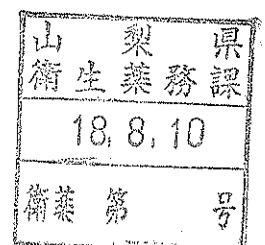 山梨県
衛生薬務課
18.8.10
衛薬 第 号